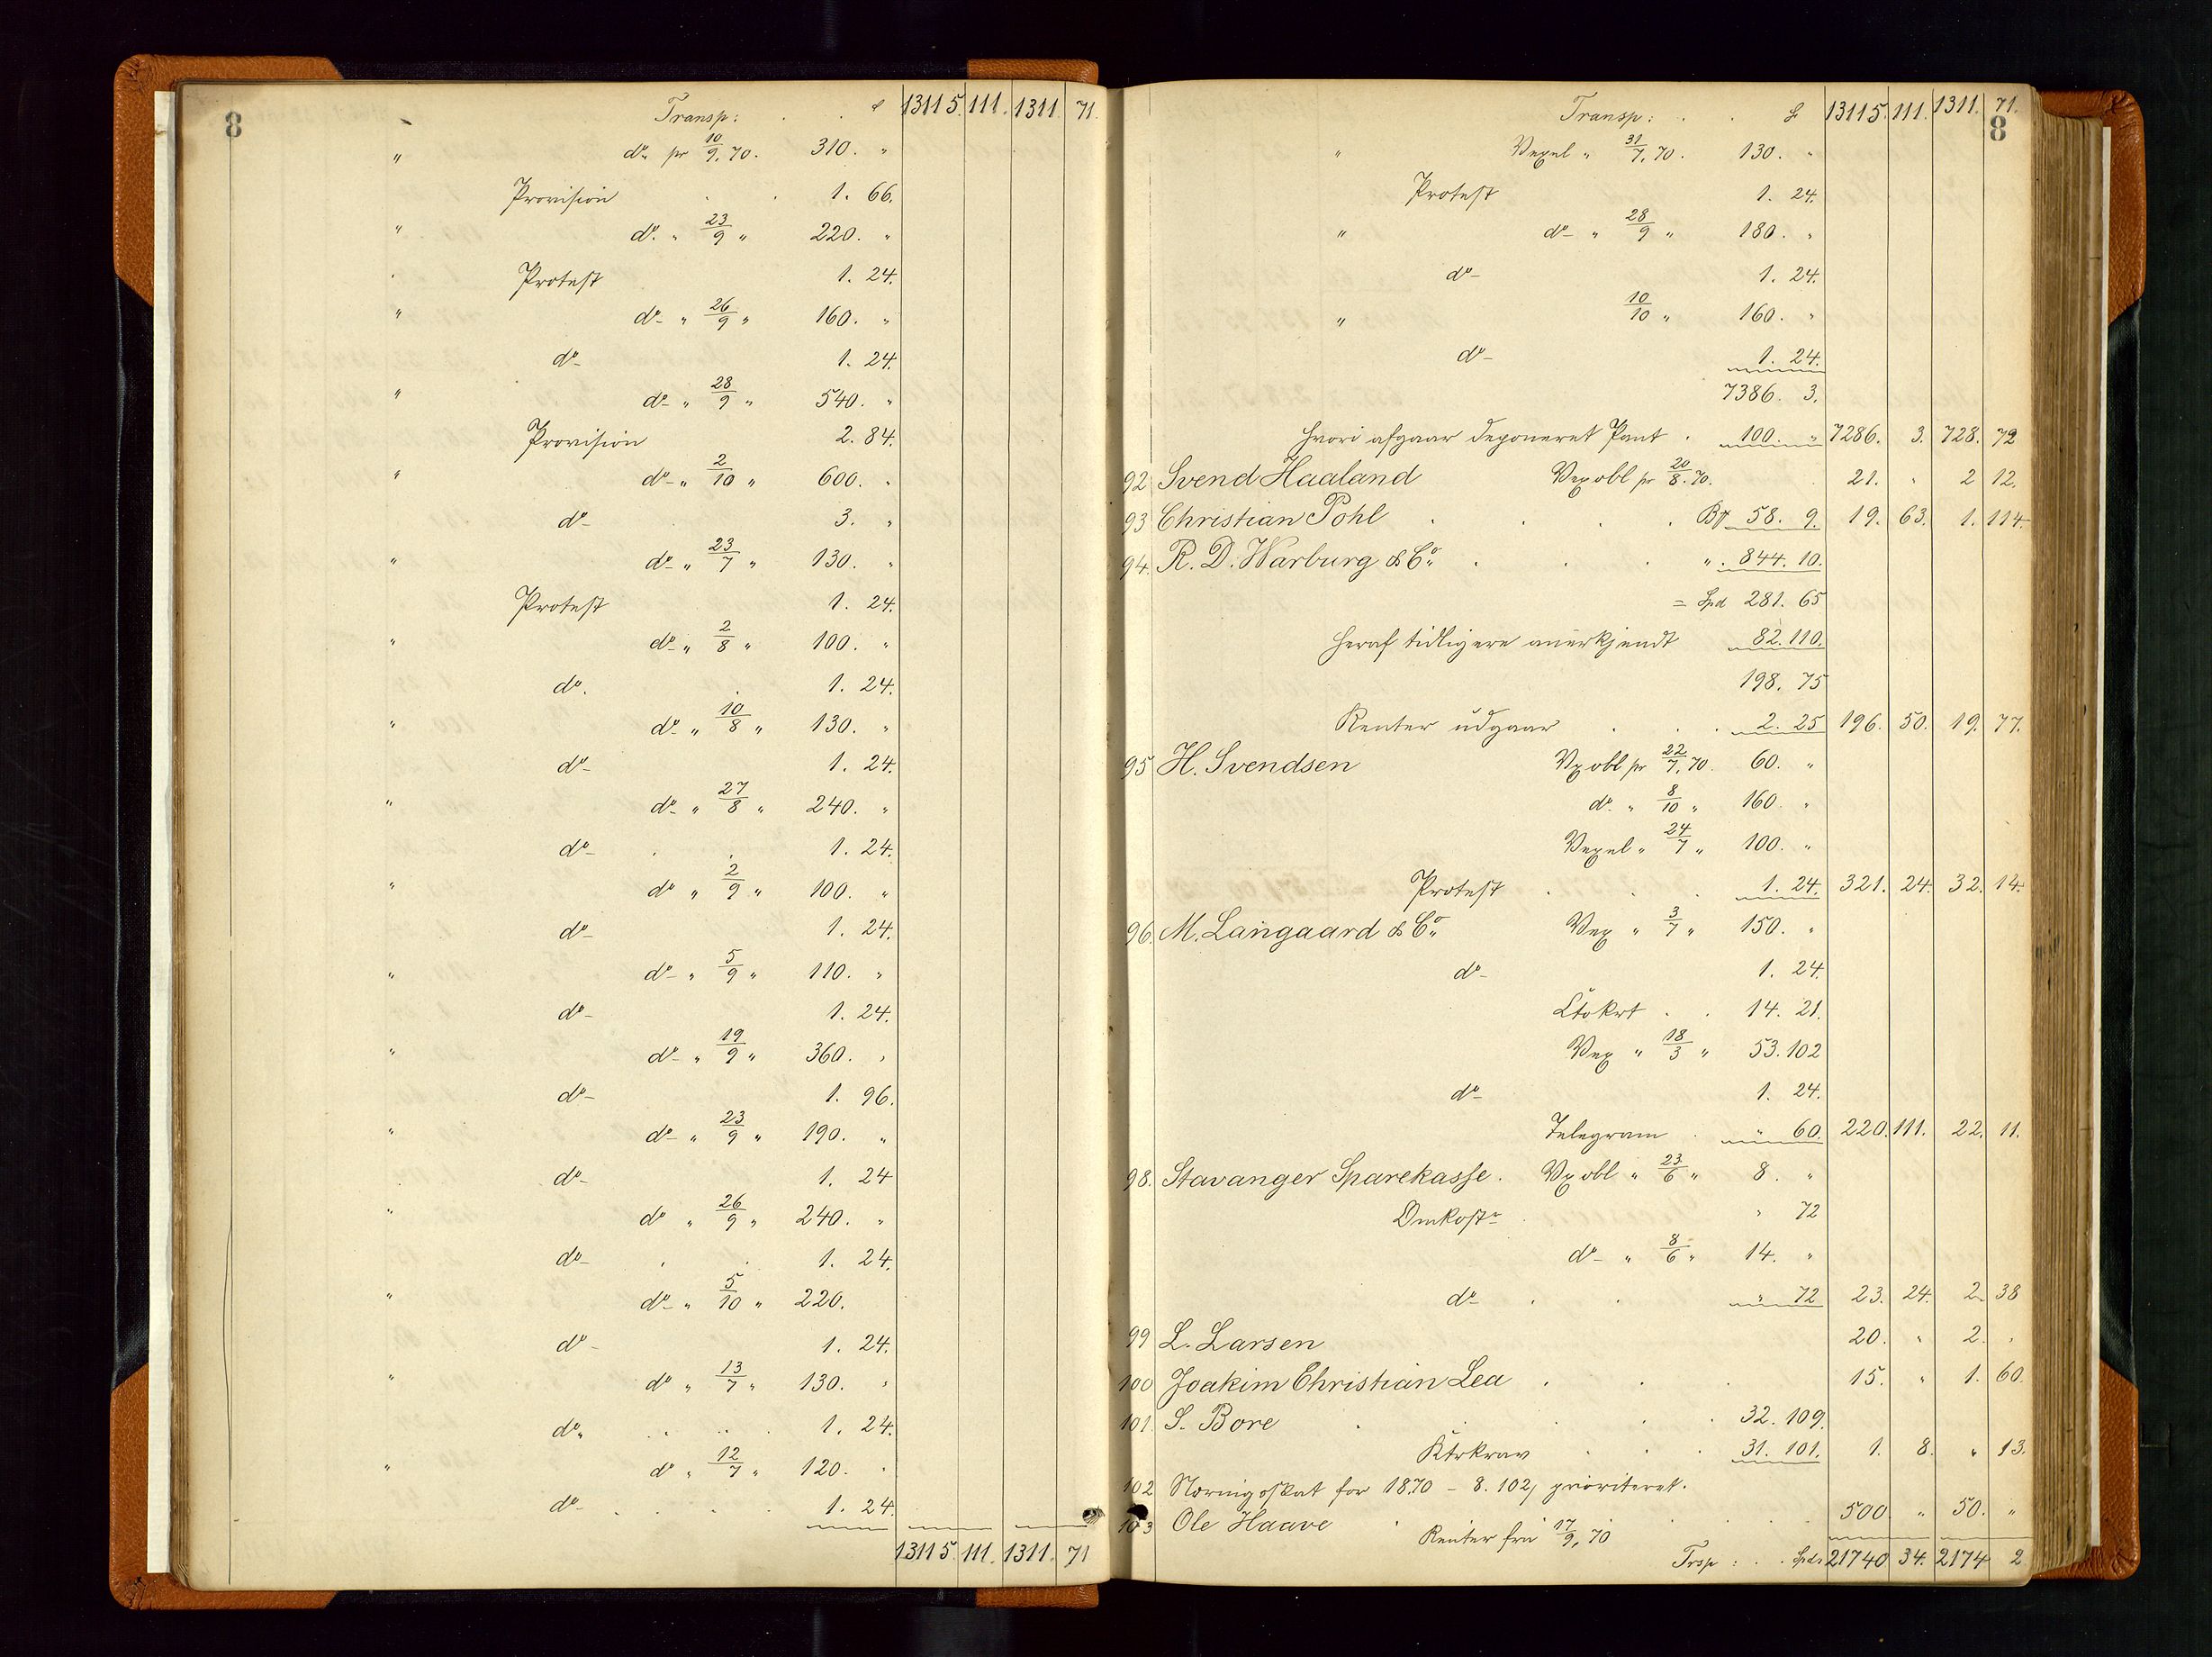 8
Transp: . . 13115. 111. 1311. 71.
" do pr 10/9. 70. 310. "
Provision . . 1. 66.
" do " 23/9 " 220. "
Protest 1. 24.
" do " 26/9 " 160. "
do 1. 24.
" do " 28/9 " 540. "
Provision 2. 84.
" do " 2/10 " 600. "
do 3. "
" do " 23/7 " 130. "
Protest 1. 24.
" do " 2/8 " 100. "
do. 1. 24.
" do " 10/8 " 130. "
do 1. 24.
" do " 27/8 " 240. "
do 1. 24.
" do " 2/9 " 100. "
do 1. 24.
" do " 5/9 " 110. "
do 1. 24.
" do " 19/9 " 360. "
do 1. 96.
" do " 23/9 " 190. "
do 1. 24
" do " 26/9 " 240. "
do 1. 24.
" do " 5/10 " 220.
do 1. 24.
" do " 13/7 " 130. "
do 1. 24.
" do " 12/7 " 120. "
do 1. 24.
13115. 111. 1311. 71
8
Transp: . . 13115. 111. 1311. 71.
" Vexel " 31/7. 70. 130. "
Protest 1. 24.
" do " 28/9 " 180. "
do 1. 24.
" 10/10 " 160. "
do 1. 24.
7386. 3.
hvori afgaar deponeret Pant . 100. " 7286. 3. 728. 72
92 Svend Haaland Vexobl pr 20/8. 70. 21. " 2 12.
93 Christian Pohl . . . . 58. 9. 19. 63. 1. 114.
94. R. D. Warburg & Co. . . . " . 844. 10.
= Spd 281. 65
heraf tidligere anerkjendt 82. 110.
198. 75
Renter udgaar . . . 2. 25 196. 50. 19. 77.
95 H. Svendsen Vxobl pr 22/7. 70. 60. "
do " 8/10 " 160. "
Vexel " 24/7 " 100. "
Protest . . . 1. 24. 321. 24. 32. 14.
96. M. Langaard & Co. Vex " 3/7 " 150. "
do 1. 24.
Ctokrt . . 14. 21.
Vex " 18/3 " 53. 102
do 1. 24.
Telegram . " 60. 220. 111. 22. 11.
98. Stavanger Sparekasse. Vxobl " 23/6 " 8. "
Omkostr . " 72
do " 8/6 " 14. "
do . . " 72 23. 24. 2. 38
99 L. Larsen 20. " 2. "
100 Joakim Christian Lea . . . 15. " 1. 60.
101. S. Bore . . . . . 32. 109.
Ktrkrav . . . 31. 101. 1. 8. " 13.
102 Næringsskat for 1870 - 8. 102, prioriteret.
103 Ole Haave . Renter fra 17/9. 70 . . . . 500. " 50. "
Trsp : . . Spdr 21740 34. 2174 2